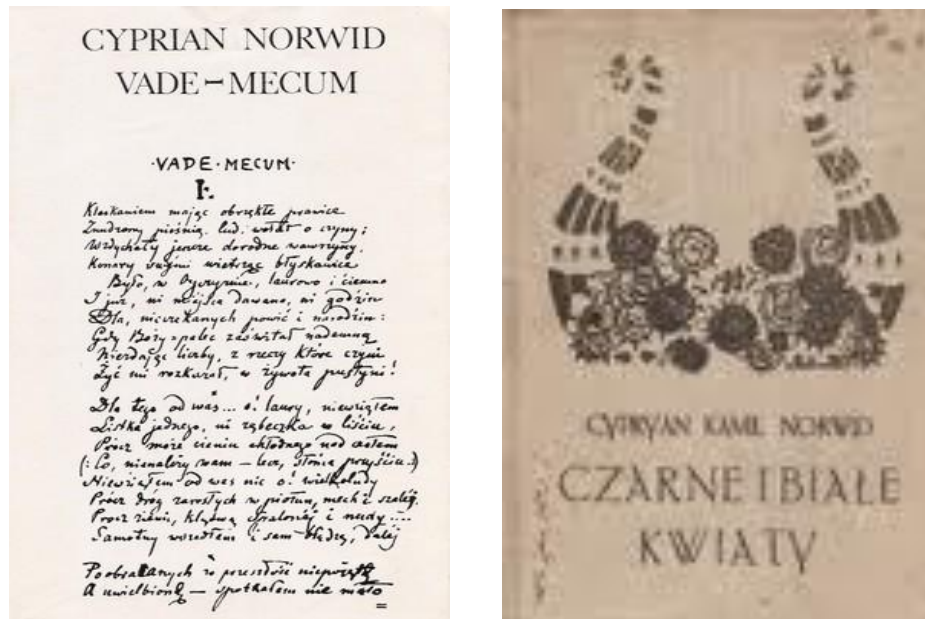 CYPRIAN NORWID
VADE–MECUM
·VADE·MECUM·
I.
Klaskaniem mając obrzękłe prawice
Znudzony pieśnią, lud wołał o czyny;
Wzdychały jeszcze dorodne wawrzyny,
Konary swymi wietrząc błyskawice
Było, w Ojczyznie, laurowo i ciemno
I już, ni miejsca dawano, ni godzin
Dla, nieczekanych powić i narodzin:
Gdy Boży-palec zaświtał nademną
Niezdając liczby, z rzeczy które czyni
Żyć mi rozkazał, w żywota pustyni!
Dla tego od was... o! laury, niewziąłem
Listka jednego, ni ząbeczka w liściu,
Prócz może cieniu chłodnego nad czołem
(: Co, nienależy wam – lecz, słońca przyjściu..:)
Niewziąłem od was nic o! wielkoludy
Prócz dróg zarosłych w piołun, mech i szaléj,
Prócz ziemi, klątwą spalonéj i nudy....
Samotny wszedłem i sam błądzę, daléj
Poobracanych w przeszłość niepojętą
A uwielbioną – spotkałem nie mało
CYPRYAN KAMIL NORWID
CZARNE I BIAŁE
KWIATY